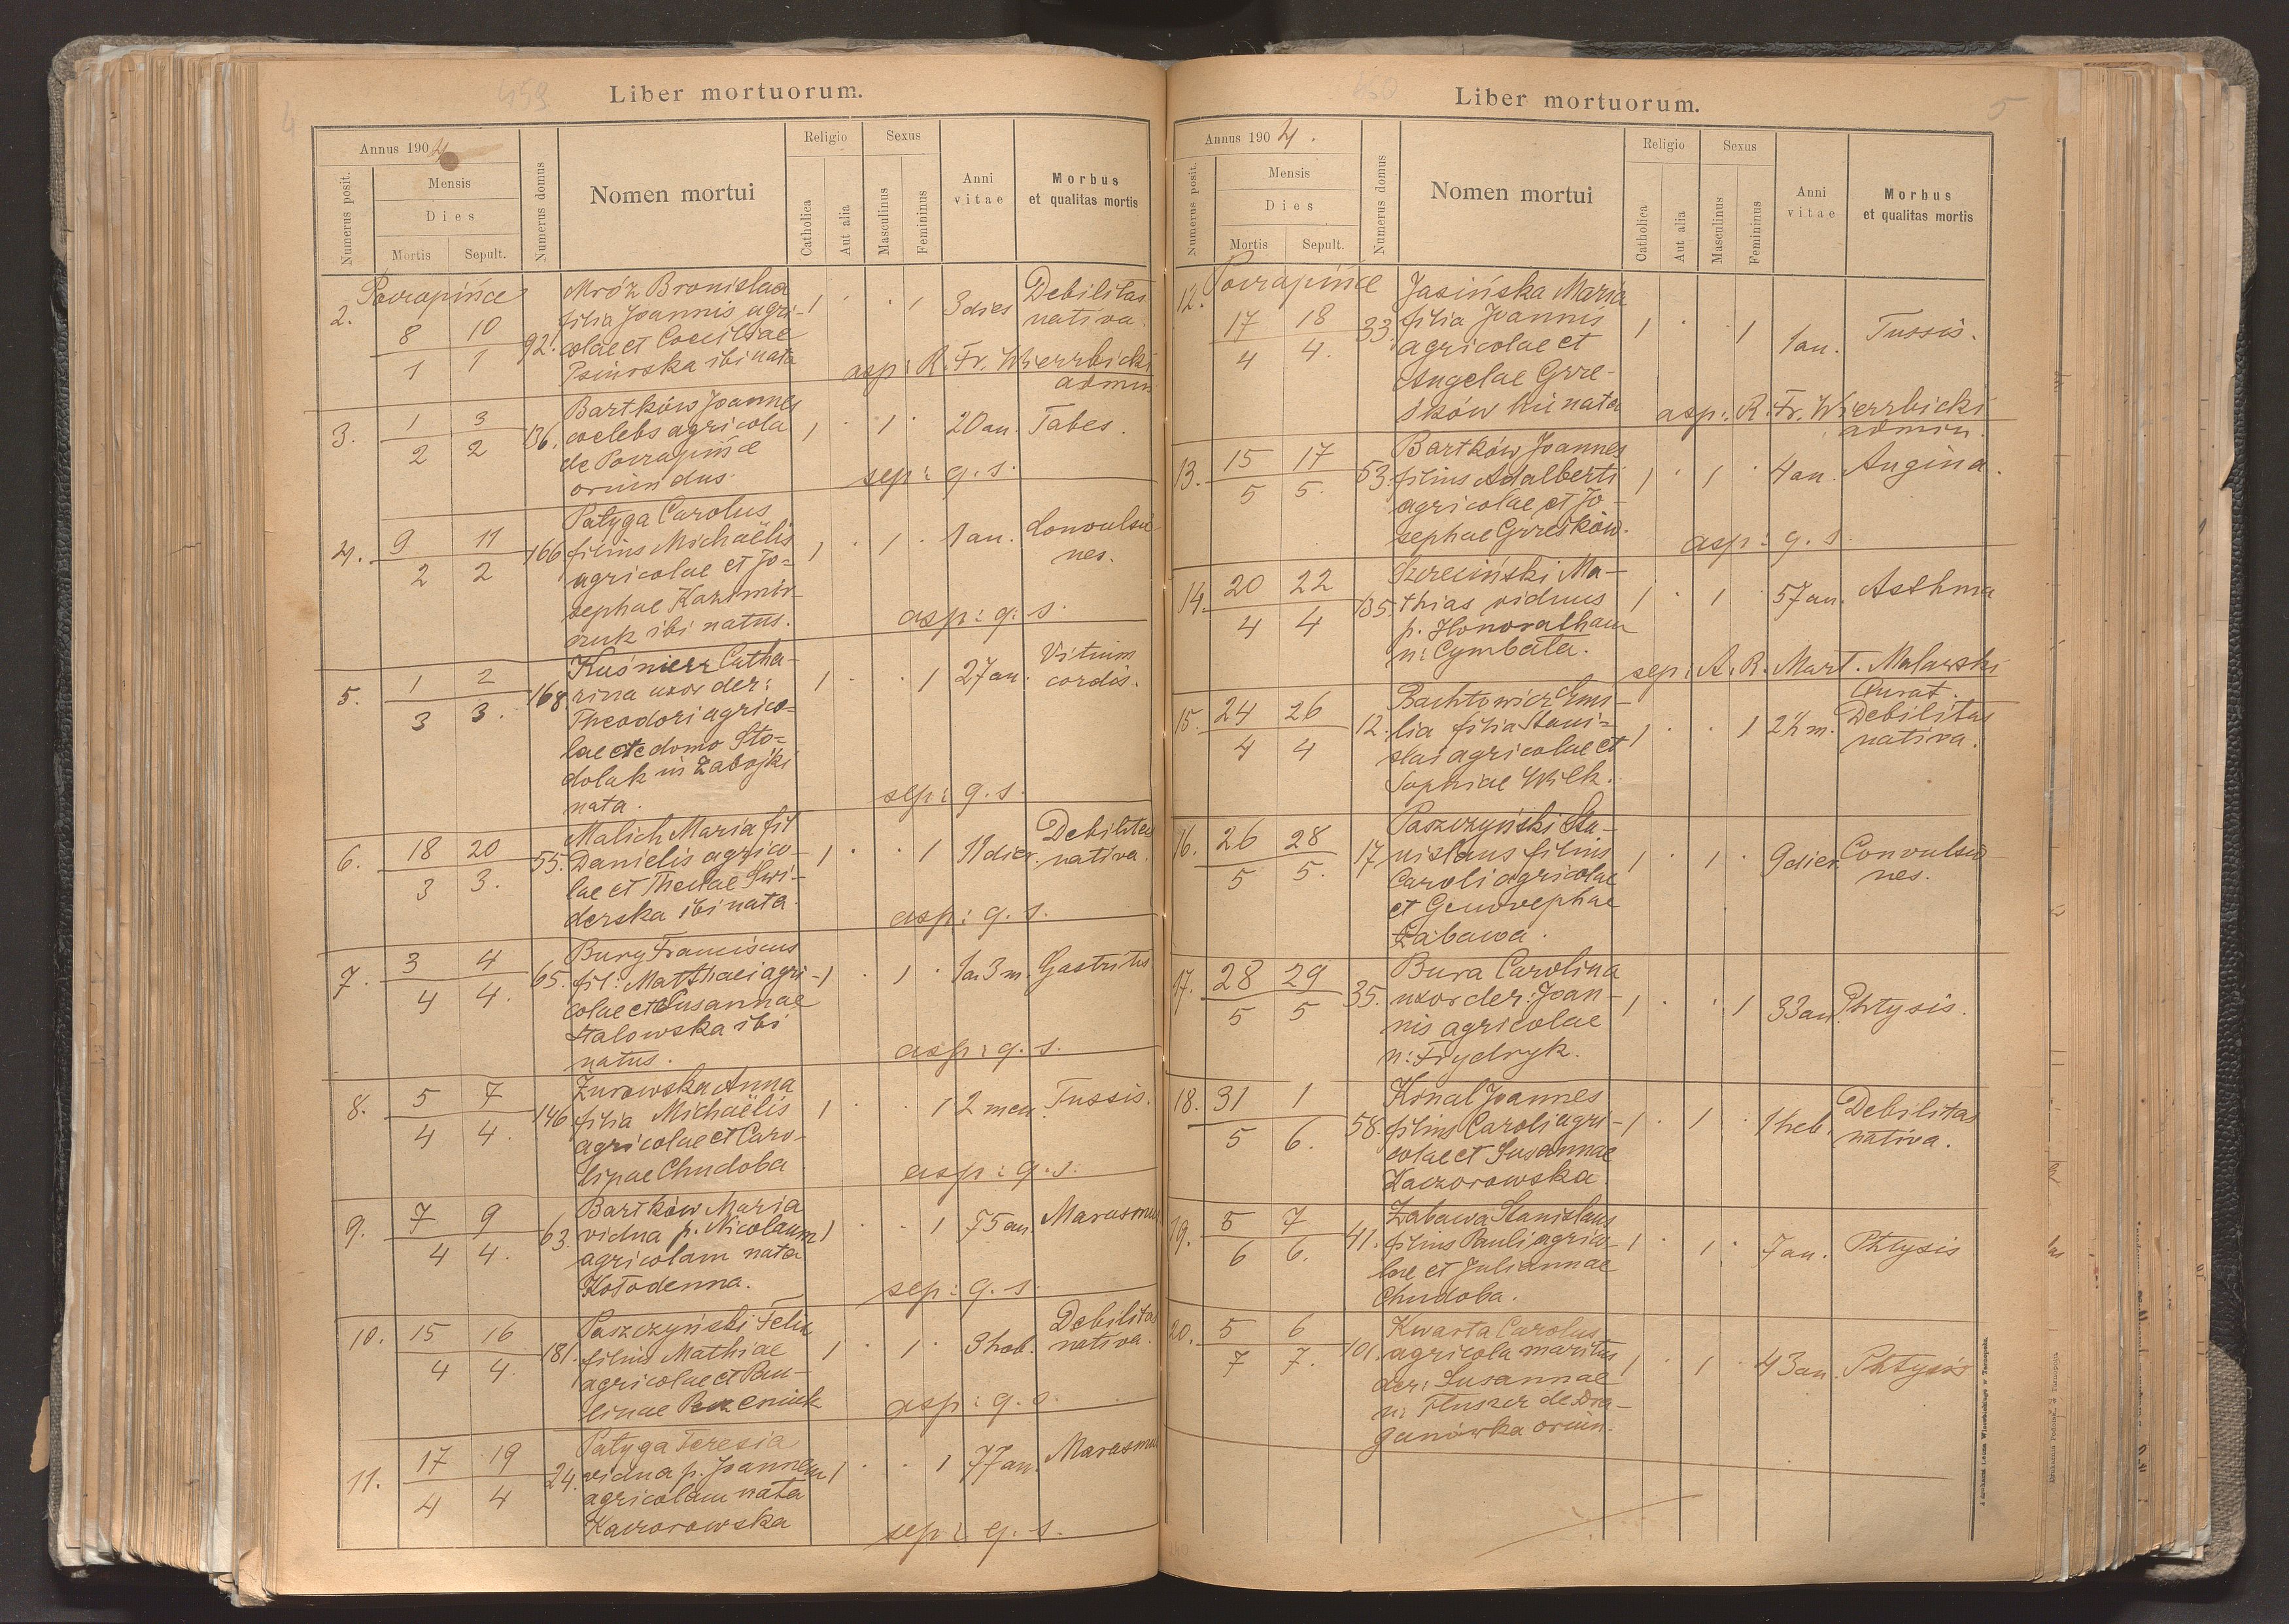 4
459
Liber mortuorum.
Annus 1904
Numerus posit.
Mensis
Dies
Mortis
Sepult.
Numerus domus
Nomen mortui
Religio
Catholica
Aut alia
Sexus
Masculinus
Femininus
Anni vitae
Morbus et qualitas mortis
2.
8 10
1 1
92.
Mróz Bronislaa
filia Joannis agri-
colae et Coeciliae
ibi nata
1 · · 1
3 dies
Debilitas
nativa.
asp: R. Fr. Wierzbicki
admin
3.
1 3
2 2
136.
Bartków Joannes
coelebs agricola
de
oriundus.
1 · 1 ·
20 an.
Tabes.
sep: q. s.
4.
9 11
2 2
166
Patyga Carolus
filius Michaëlis
agricolae et Jo=
sephae Kazimir-
czuk ibi natus.
1 · 1 ·
1 an.
Convulsio
nes.
asp: q. s.
5.
1 2
3 3.
168.
Kuśnierz Catha-
rina uxor der:
Theodori agrico=
lae et e domo Sto=
dolak in Zabojki
nata.
1 · · 1
27 an.
Vitium
cordis.
sep: q. s.
6.
18 20
3 3.
55.
Malich Maria fil
Danielis agrico-
lae et Theclae Swi-
derska ibi nata.
1 · · 1
11 dier.
Debilitas
nativa.
asp: q. s.
7.
3 4
4 4.
65.
Bury Franciscus
fil: Matthaei agri-
colae et Susannae
Stalowska ibi
natus.
1 · 1 ·
1 an 3 m.
Gastritis
asp: q. s.
8.
5 7
4 4.
146
Żurowska Anna
filia Michaëlis
agricolae et Caro-
linae Chudoba
1 · · 1
2 men.
Tussis.
asp: q. s.
9.
7 9
4 4.
63.
Bartków Maria
vidua p. Nicolaum
agricolam nata
Kołodenna.
1 · · 1
75 an
Marasmus
sep: q. s.
10.
15 16
4 4.
181.
Paszczyński Felix
filius Mathiae
agricolae et Pau-
linae
1 · 1 ·
3 heb.
Debilitas
nativa.
asp: q. s.
11.
17 19
4 4
24.
Patyga Teresia
vidua p. Joannem
agricolam nata
Kaczorowska
1 · · 1
77 an.
Marasmus
sep: q. s.
450
5
Liber mortuorum.
Annus 1904.
Numerus posit.
Mensis
Dies
Mortis
Sepult.
Numerus domus
Nomen mortui
Religio
Catholica
Aut alia
Sexus
Masculinus
Femininus
Anni vitae
Morbus et qualitas mortis
12.
17 18
4 4.
33.
Jasińska Maria
filia Joannis
agricolae et
Angelae Grze-
śków nata
1 · · 1
1 an.
Tussis.
asp: R. Fr. Wierzbicki
admin.
13.
15 17
5 5.
53.
Bartków Joannes
filius Adalberti
agricolae et Jo-
sephae Grześków.
1 · 1 ·
4 an.
Angina.
asp: q. s.
14.
20 22
4 4
135.
Szreciński Ma-
thias viduus
p. Honoratham
n: Cymbała.
1 · 1 ·
57 an.
Asthma
sep: A. R. Mart. Malawski
Curat.
15.
24 26
4 4
12.
Bachtowicz Emi-
lia filia Stani=
slai agricolae et
Sophiae Wilk.
1 · · 1
2½ m.
Debilitas
nativa.
16.
26 28
5 5.
17
Paszczyński Sta-
nislaus filius
Caroli agricolae
et Genovephae
Zabawa.
1 · 1 ·
9 dier.
Convulsio
nes.
17.
28 29
5 5
35.
Bura Carolina
uxor der: Joan-
nis agricolae
n: Frydryk.
1 · · 1
33 an.
Phtysis.
18.
31 1
5 6.
58.
Kinal Joannes
filius Caroli agri-
colae et Susannae
Kaczorowska
1 · 1 ·
1 heb.
Debilitas
nativa.
19.
5 7
6 6.
41.
Zabawa Stanislaus
filius Pauli agrico-
lae et Juliannae
Chudoba.
1 · 1 ·
7 an.
Phtysis
20.
5 6
7 7.
101.
Kwarta Carolus
agricola maritus
der: Susannae
n: Fluszer de Dra-
ganówka oriun.
1 · 1 ·
43 an.
Phtysis